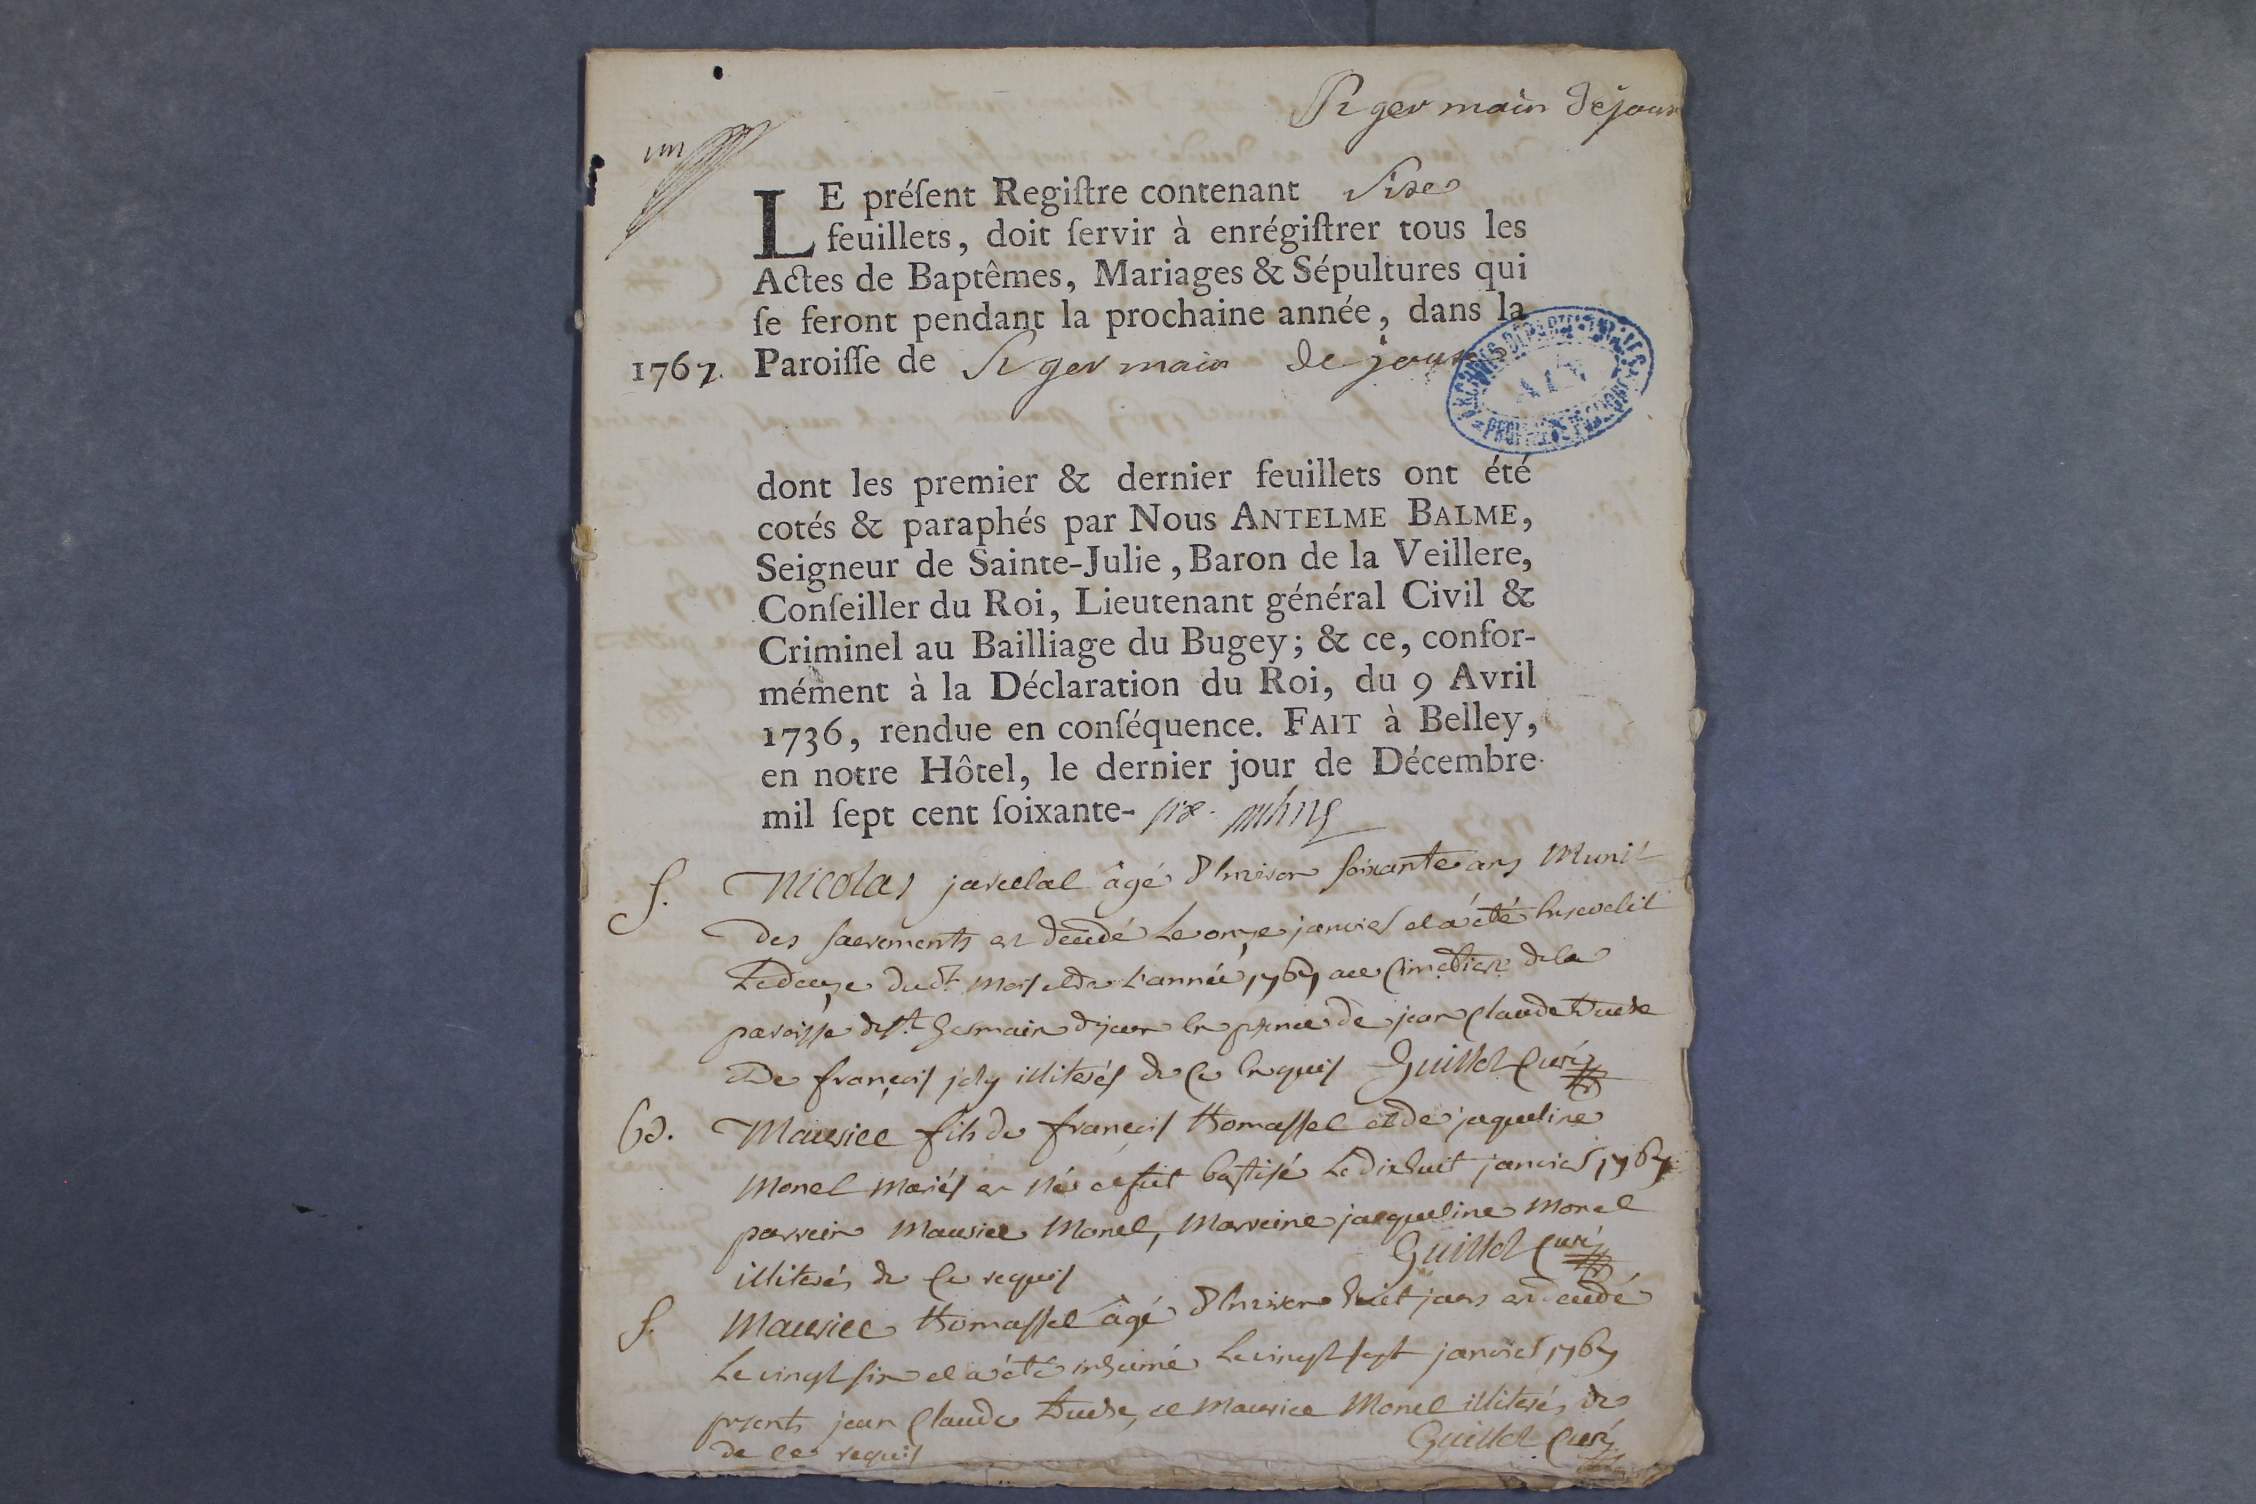 St germain de joux
un
LE préſent Regiſtre contenant Sixe
feuillets, doit ſervir à enrégiſtrer tous les
Actes de Baptêmes, Mariages & Sépultures qui
ſe feront pendant la prochaine année, dans la
1767. Paroiſſe de St germain de joux
dont les premier & dernier feuillets ont été
cotés & paraphés par Nous ANTELME BALME,
Seigneur de Sainte-Julie, Baron de la Veillere,
Conſeiller du Roi, Lieutenant général Civil &
Criminel au Bailliage du Bugey; & ce, confor-
mément à la Déclaration du Roi, du 9 Avril
1736, rendue en conſéquence. FAIT à Belley,
en notre Hôtel, le dernier jour de Décembre
mil ſept cent ſoixante- six.
S. Nicolas âgé d'Environ soixante ans Muni
des sacrements est decédé le onze janvier et a été Ensevelit
Le douze dudt mois et de l'année 1767 au Cimetiere de la
paroisse de st. Germain de joux En psence de jean Claude Tuide
et De françois joly illiterés de Ce Enquis Guillot Curé
b. Maurice fils de françois thomasset et de jaqueline
Monet mariés est né et fut baptisé Le dixhuit janvier 1767
parrein Maurice Monet, Marreine jacqueline Monet
illiterés de Ce requis Guillot Curé
S. Maurice thomasset âgé d'Environ huit jours est decedé
Le vingt six et a été inhumé Le vingt sept janvier 1767
psents jean Claude Tuide, et Maurice Monet illiterés de
de ce requis Guillot Curé